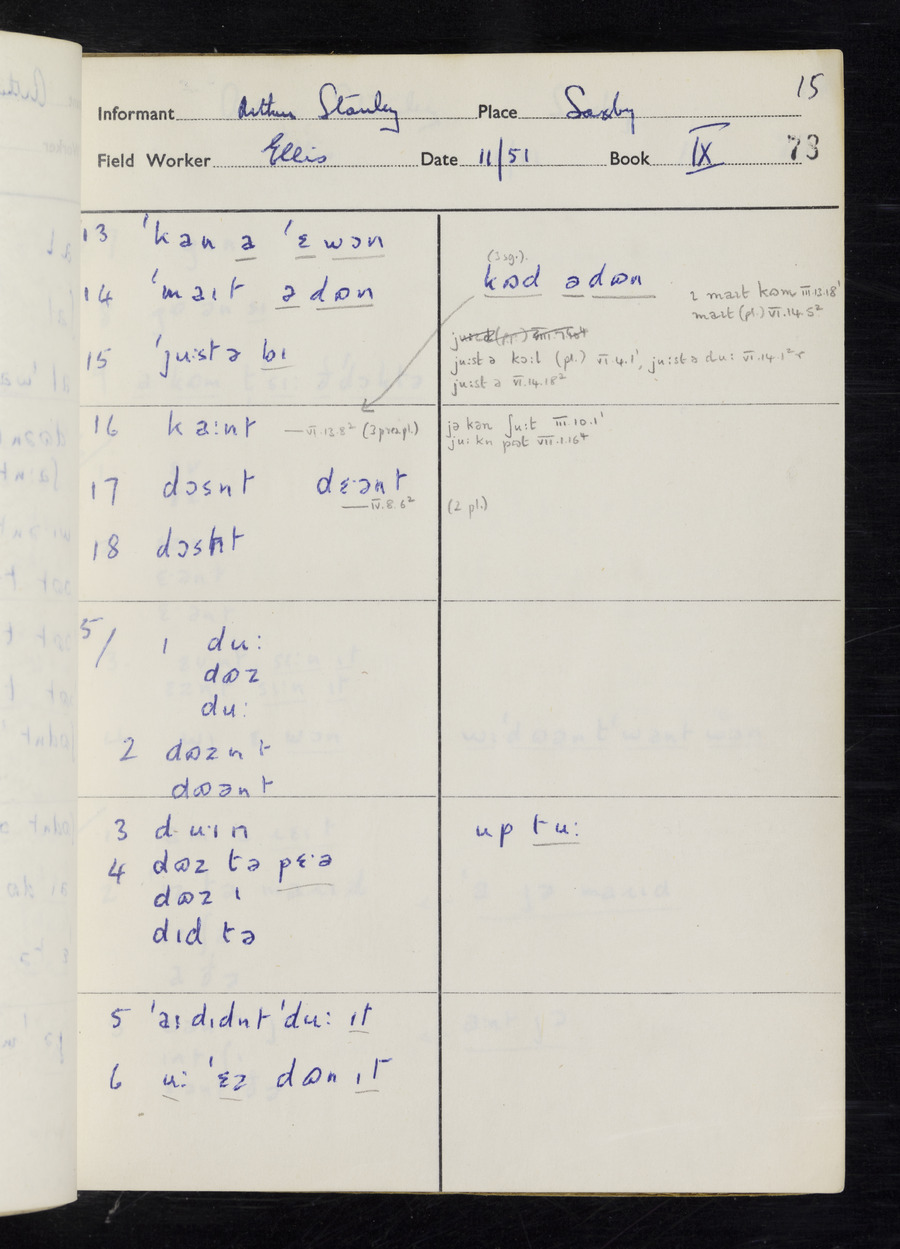 15
Informant Arthur Stanley Place Saxby
Field Worker Ellis Date 11/51 Book IX 73
13 ˈkan a ˈɛwən
14 ˈmaɪt ə dɷn
(3sg.).
kɷd ədɷn
ɪ maɪt kɷm III.13.18¹
maɪt (pl.) VI.14.5²
15 ˈjuːstə bɪ
juːstə kɔːl (pl.) VI.4.1¹, juːstə duː VI.14.1²
juːstə VI.14.18²
16 kaːnt — VI.13.8² (3 pres pl.)
jə kən ʃuːt III.10.1¹
juː kn pɷt VII.1.16⁴
17 dəsnt dɛːənt
— IV.8.6² (2 pl.)
18 dɔsnt
5/ 1 duː
dɷz
duː
2 dɷznt
dɷənt
3 duːɪn up tuː
4 dɷz tə pɛˑə
dɷz ɪ
dɪd tə
5 ˈaɪ dɪdnt ˈduː ɪt
6 uː ˈɛz dɷn ɪt